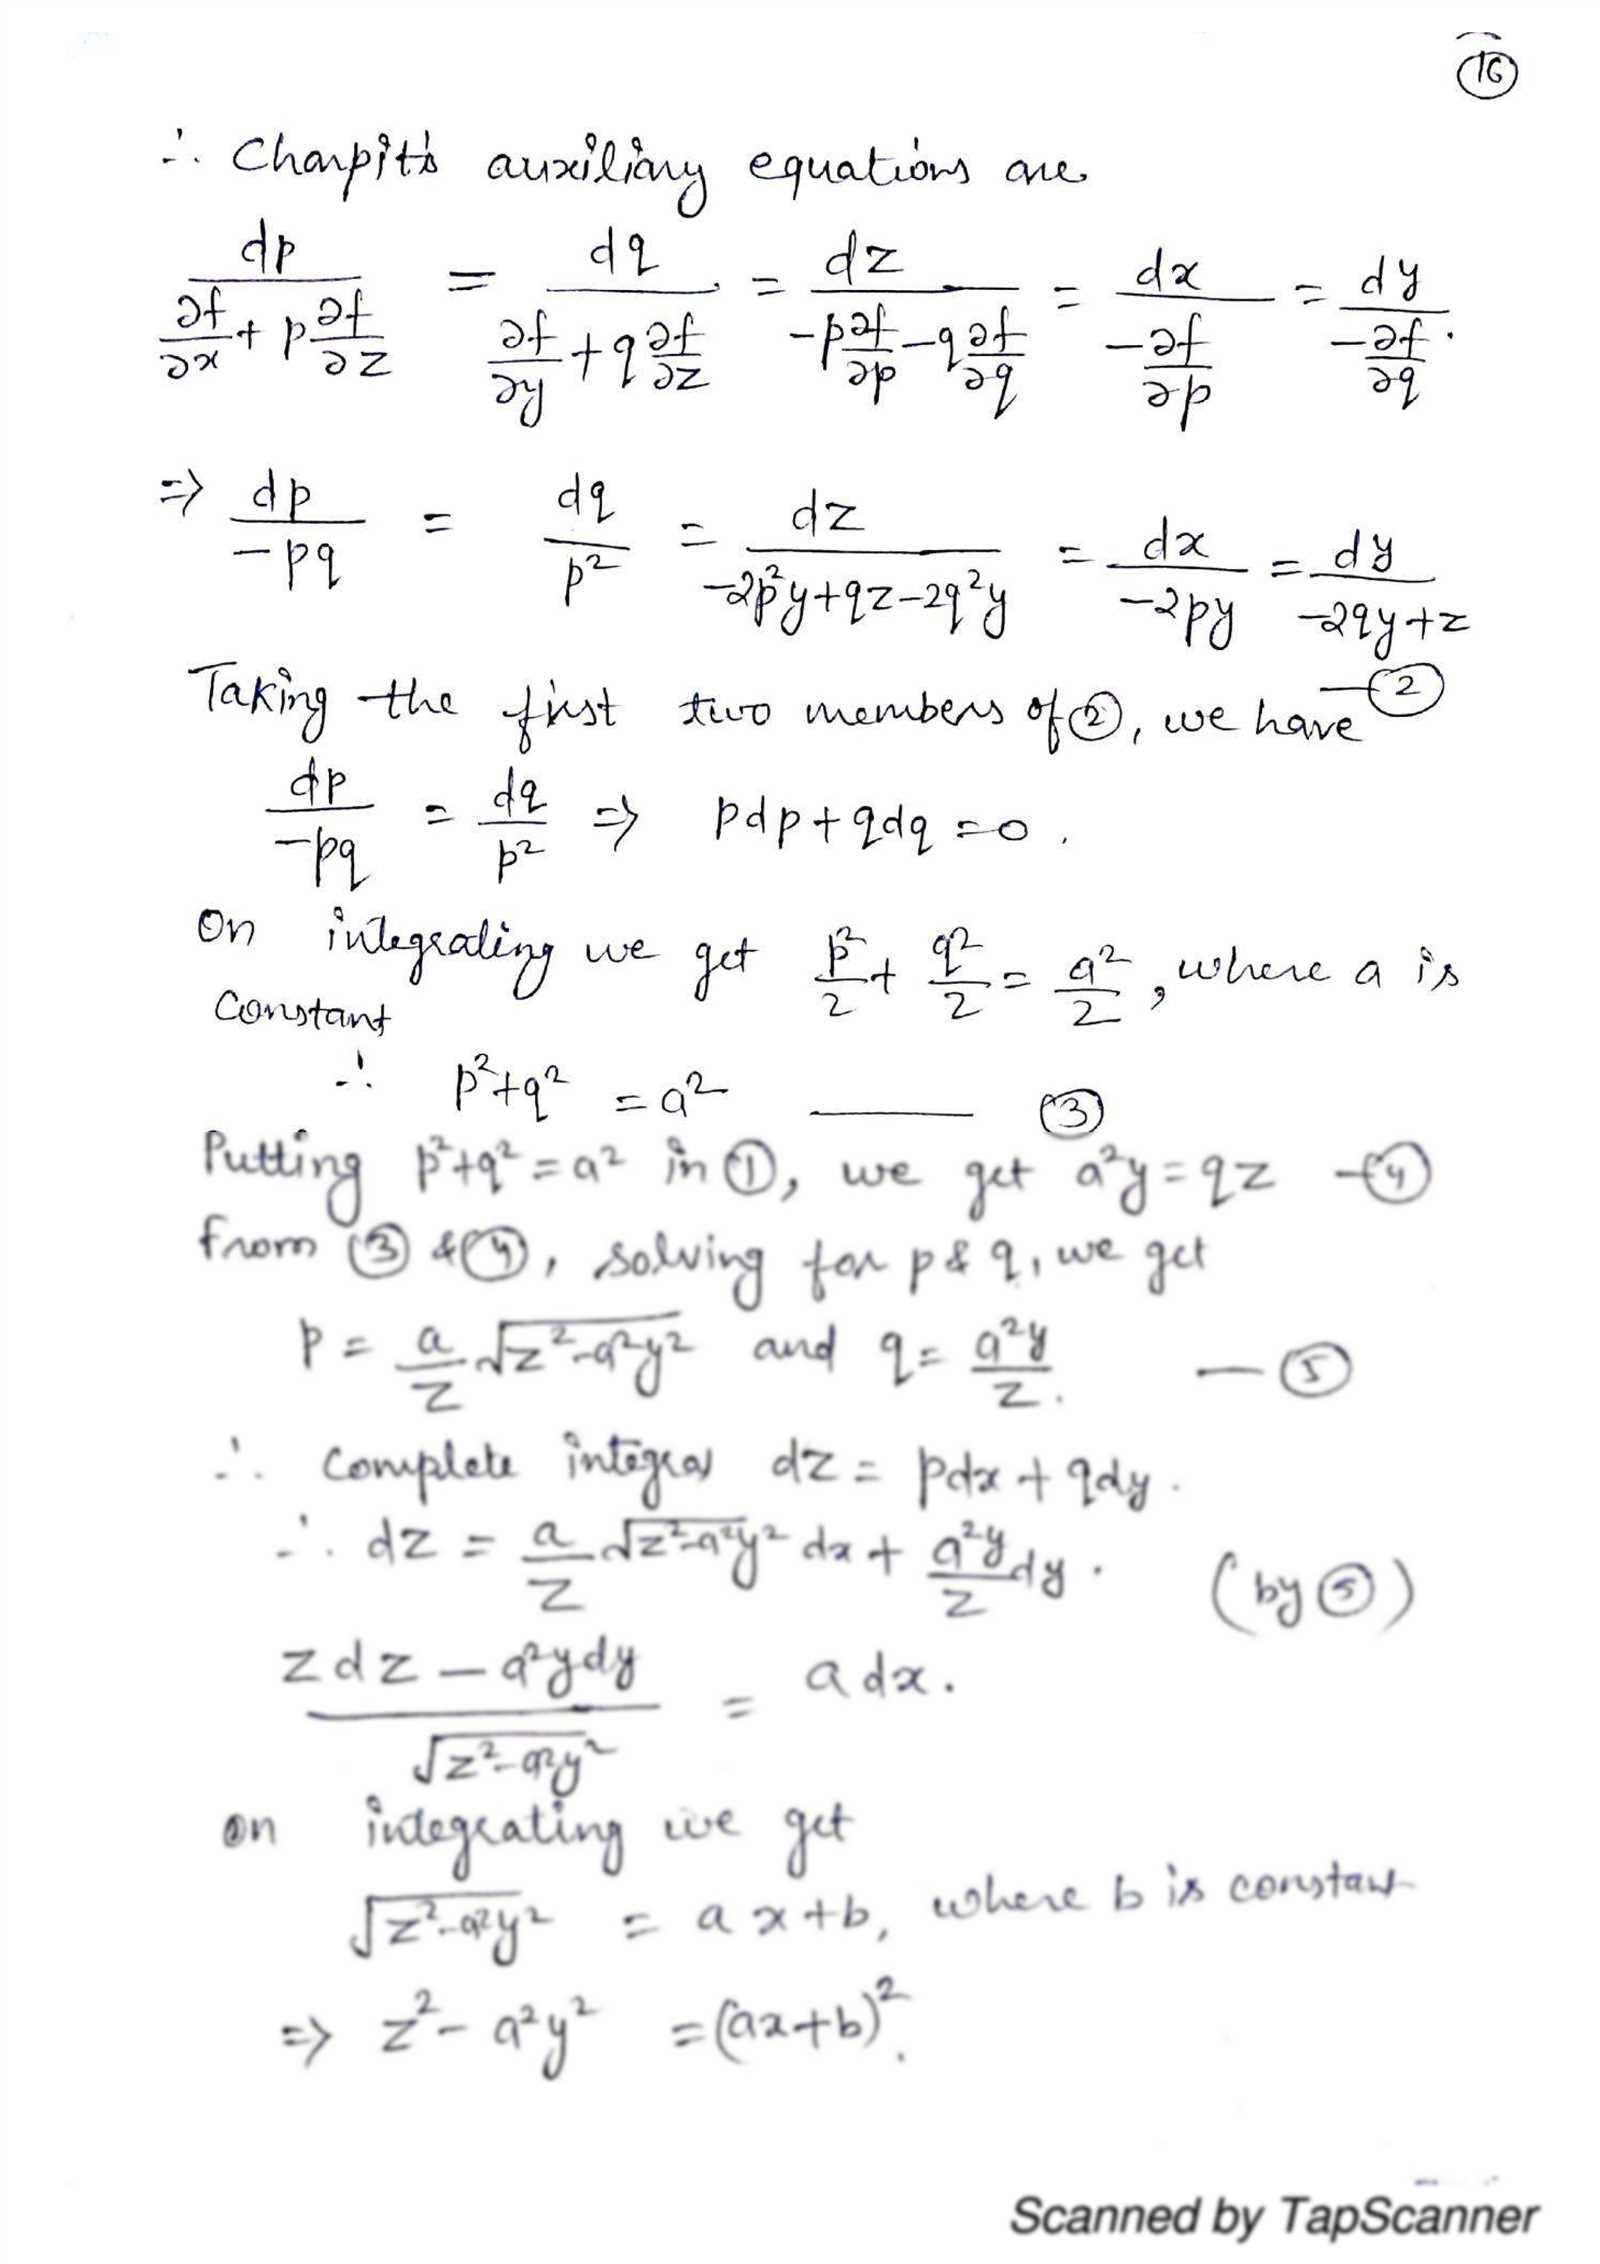 16
∴ Charpit's auxiliary equations are
dp/(∂f/∂x + p ∂f/∂z) = dq/(∂f/∂y + q ∂f/∂z) = dz/(-p ∂f/∂p - q ∂f/∂q) = dx/(-∂f/∂p) = dy/(-∂f/∂q).
⇒ dp/(-pq) = dq/p² = dz/(-2p²y+qz-2q²y) = dx/(-2py) = dy/(-2qy+z)
—②
Taking the first two members of ②, we have
dp/(-pq) = dq/p² ⇒ pdp+qdq=0.
On integrating we get p²/2 + q²/2 = a²/2, where a is
constant
∴ p²+q² = a² —— ③
Putting p²+q²=a² in ①, we get a²y=qz —④
From ③ & ④, solving for p & q, we get
p = a/z √(z²-a²y²) and q = a²y/z. — ⑤
∴ Complete integral dz = pdx + qdy.
∴ dz = a/z √(z²-a²y²) dx + a²y/z dy. (by ⑤)
(zdz - a²ydy)/√(z²-a²y²) = adx.
on integrating we get
√(z²-a²y²) = ax+b, where b is constant
⇒ z² - a²y² = (ax+b)².
Scanned by TapScanner